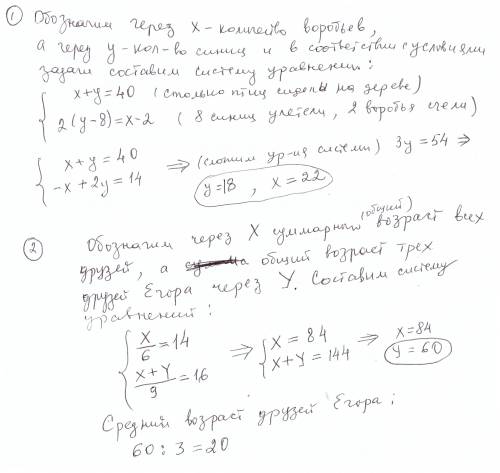 ① Обозначим через X - количество воробьев,
а через y - кол-во синиц и в соответствии с условиями
задачи составим систему уравнений:
x+y=40 (столько птиц сидело на дереве)
2(y-8)=x-2 (8 синиц улетели, 2 воробья съели)
x+y=40
-x+2y=14 ⇒ (сложим ур-ия системы) 3y=54 ⇒
y=18, x=22
② Обозначим через X суммарный (общий) возраст всех
друзей, а общий возраст трех
друзей Егора через Y. Составим систему
уравнений:
X/6=14
X+Y/9=16 ⇒ X=84
X+Y=144 ⇒ x=84
y=60
Средний возраст друзей Егора:
60:3=20